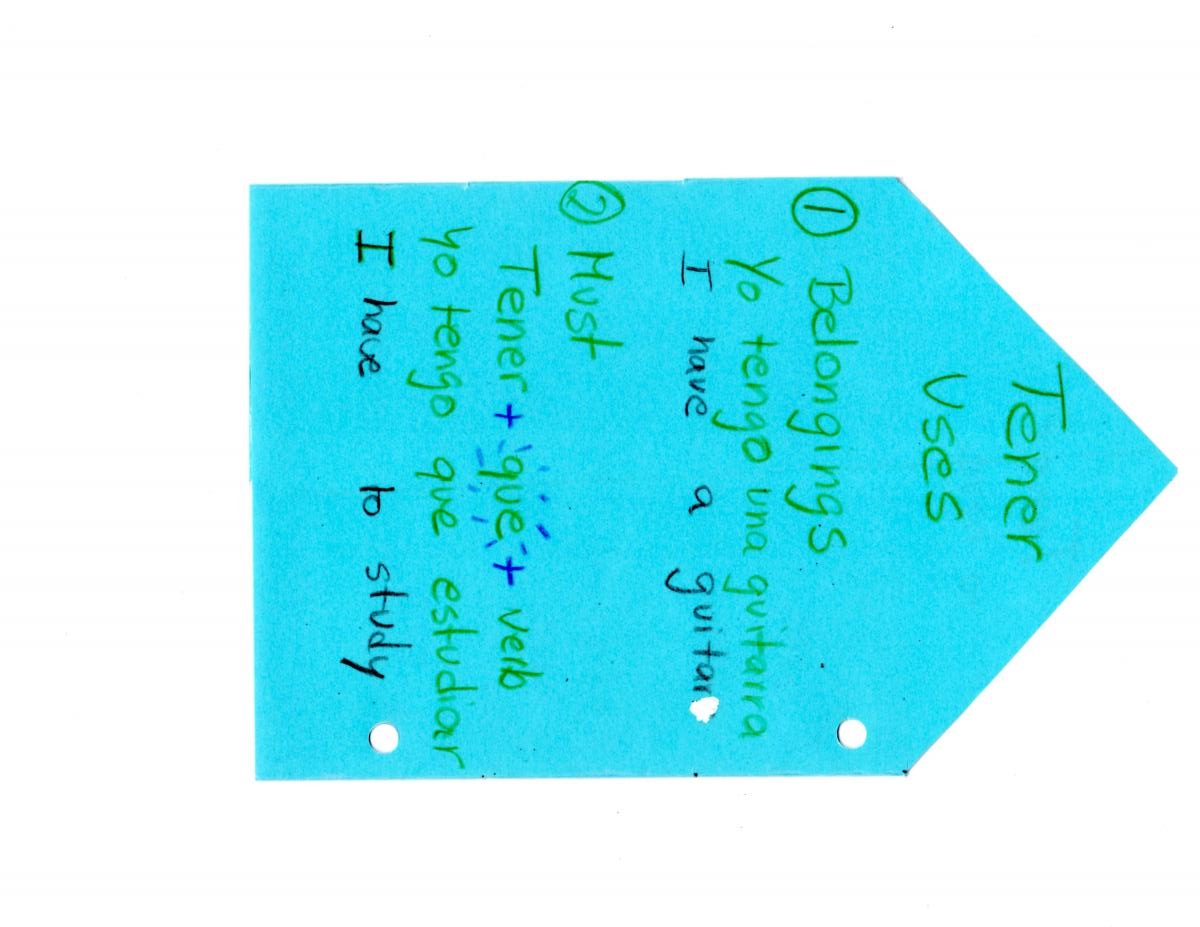 Tener
Uses
① Belongings
Yo tengo una guitarra
I have a guitar
② Must
Tener + que + verb
Yo tengo que estudiar
I have to study